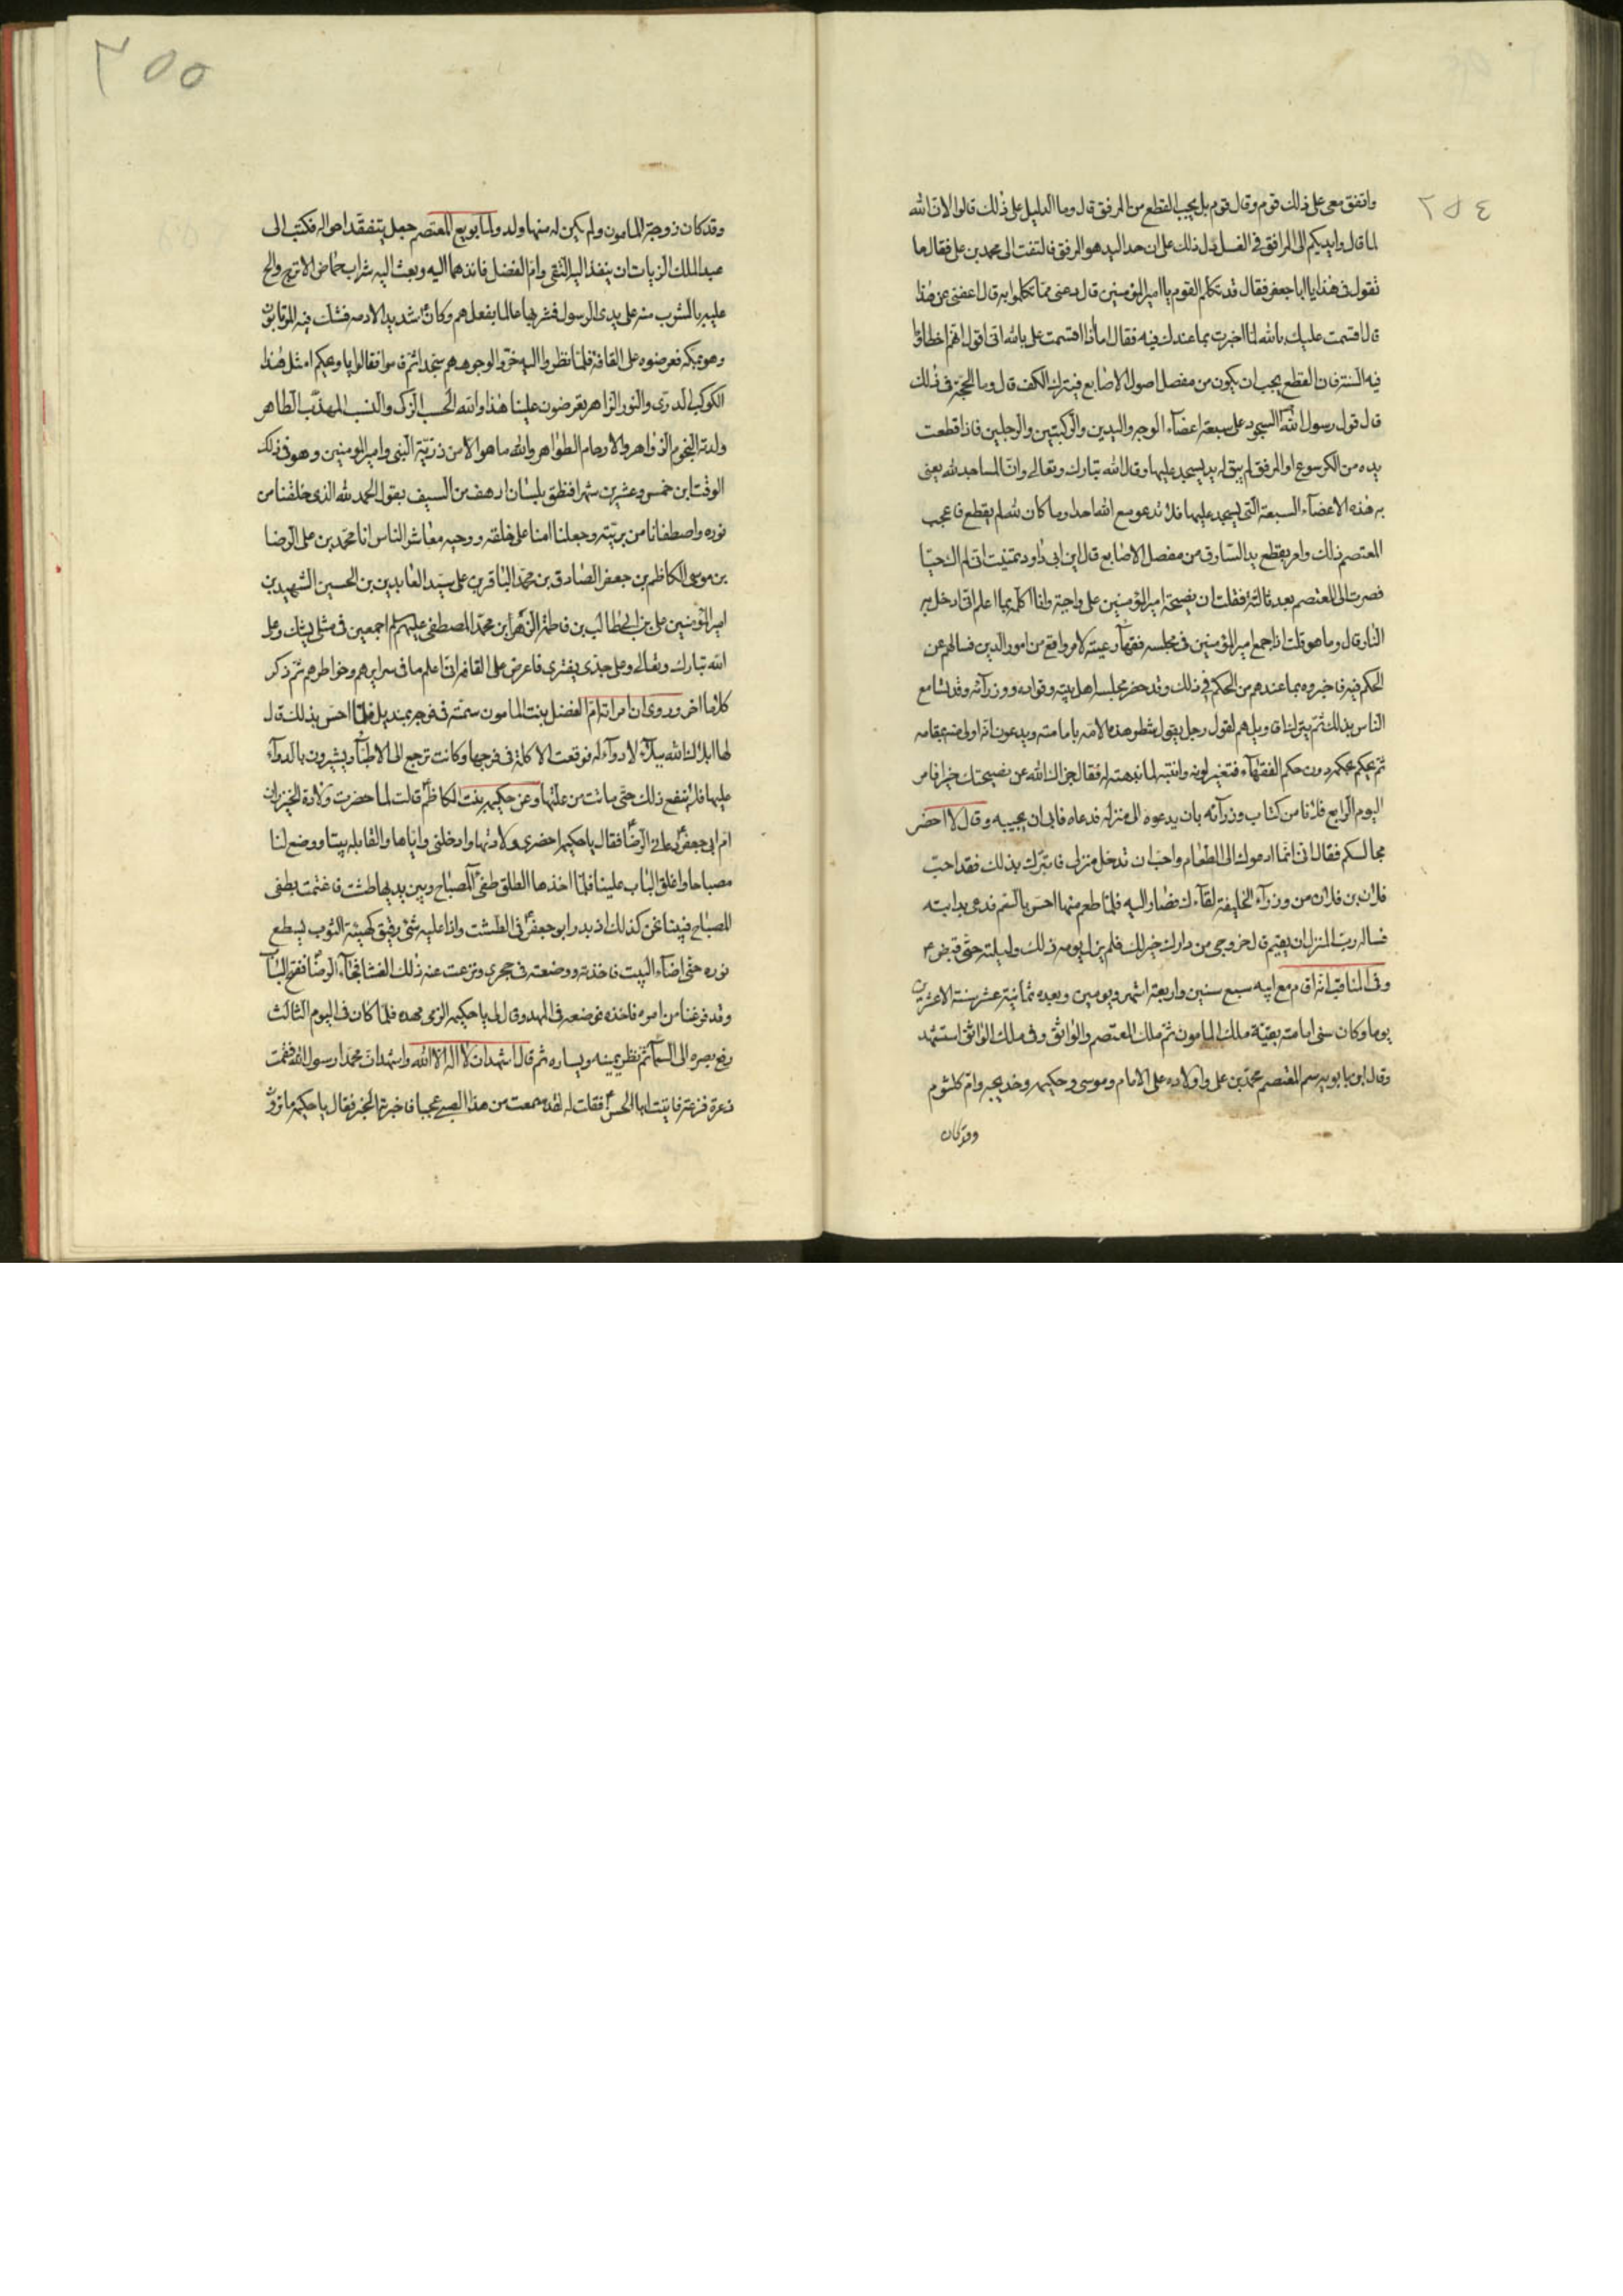 ٢٥٤
واتفق معى على ذلك قوم وقال قوم بل يجب القطع من المرفق قال وما الدليل على ذلك قالوا لان الله
لما قال وايديكم الى المرافق فى الغسل دل ذلك على ان حد اليد هو المرفق فالتفت الى محمد بن على فقال ما
تقول فى هذا يا ابا جعفر فقال قد تكلم القوم يا امير المؤمنين قال دعنى مما تكلموا به قال اعفنى عن هذا
قال اقسمت عليك بالله لما اخبرت بما عندك فيه فقال اما اذا اقسمت على بالله انى اقول انهم اخطاؤا
فيه السنة فان القطع يجب ان يكون من مفصل اصول الاصابع فيترك الكف قال وما الحجة فى ذلك
قال قول رسول الله السجود على سبعة اعضآء الوجه واليدين والركبتين والرجلين فاذا قطعت
يده من الكرسوع او المرفق لم يبق له يد يسجد عليها وقال الله تبارك وتعالى وان المساجد لله يعنى
به هذه الاعضآء السبعة التى يسجد عليها فلا تدعو مع الله احدا وما كان لله لم يقطع فاعجب
المعتصم ذلك وامر بقطع يد السارق من مفصل الاصابع قال ابن ابى داود تمنيت انى لم اك حيا
فصرت الى المعتصم بعد ثالثة فقلت ان نصيحة امير المؤمنين على واجبة وانا اكلمه بما اعلم انى ادخل به
النار قال وما هو قلت اذا جمع امير المؤمنين فى مجلسه فقهآء رعيته لامر واقع من امور الدين فسالهم عن
الحكم فيه فاخبروه بما عندهم من الحكم فى ذلك وقد حضر مجلسه اهل بيته وقواده ووزرآئه وقد تسامع
الناس بذلك ثم يترك اقاويلهم لقول رجل يقول شطر هذه الامة بامامته ويدعون انه اولى منه بمقامه
ثم يحكم بحكمه دون حكم الفقهآء فتغير لونه وانتبه لما نبهته له فقال جزاك الله عن نصيحتك خيرا فامر
اليوم الرابع فلانا من كتاب وزرآئه بان يدعوه الى منزله فدعاه فابى ان يجيبه وقال لا احضر
مجالسكم فقال انى انما ادعوك الى الطعام واحب ان تدخل منزلى فاتبرك بذلك فقد احب
فلان بن فلان من وزرآء الخليفة لقآءك فصار اليه فلما طعم منها احس بالسم فدعى بدابته
فساله رب المنزل ان يقيم قال خروجى من دارك خير لك فلم يزل يومه ذلك وليلته حتى قبض ع
وفى المناقب انه اقام مع ابيه سبع سنين واربعة اشهر ويومين وبعده ثمانية عشر سنة الا عشرين
يوما وكان سنى امامته بقية ملك المامون ثم ملك المعتصم والواثق وفى ملك الواثق استشهد
وقال ابن بابويه سم المعتصم محمد بن على واولاده على الامام وموسى وحكيمه وخديجه وام كلثوم
وقد كان
٢٥٥
وقد كان زوجته المامون ولم يكن له منها ولد ولما بويع المعتصم جعل يتفقد احواله فكتب الى
عبد الملك الزيات ان ينفذ اليه التقى وام الفضل فانفذهما اليه وبعث اليه شراب حماض الاترج والح
عليه بالشرب منه على يدى الرسول فشربها عالما بفعلهم وكان شديد الادمه فشك فيه المرتابون
وهو بمكه فعرضوه على القافة فلما نظروا اليه خروا لوجوههم سجدا ثم قاموا فقالوا يا ويحكم امثل هذا
الكوكب الدرى والنور الزاهر يعرضون علينا هذا والله الحسب الزكى والنسب المهذب الطاهر
ولدته النجوم الزواهر والارحام الطواهر والله ما هو الا من ذرية النبى وامير المؤمنين وهو فى ذلك
الوقت ابن خمس وعشرين شهرا فنطق بلسان ارهف من السيف يقول الحمد لله الذى خلقنا من
نوره واصطفانا من بريته وجعلنا امنا على خلقه ووحيه معاشر الناس انا محمد بن على الرضا
بن موسى الكاظم بن جعفر الصادق بن محمد الباقر بن على سيد العابدين بن الحسين الشهيد بن
امير المؤمنين على بن ابى طالب بن فاطمة الزهرا بن محمد المصطفى عليهم السلم اجمعين فى مثلى يشك وعلى
الله تبارك وتعالى وعلى جدى يفترى فاعرض على القافه انى اعلم ما فى سرايرهم وخواطرهم ثم ذكر
كلاما اخر وروى ان امراته ام الفضل بنت المامون سمته فى فرجه بمنديل فلما احس بذلك قال
لها ابلاك الله بدآء لا دوآء له فوقعت الاكلة فى فرجها وكانت ترجع الى الاطبآء ويشيرون بالدوآء
عليها فلا ينفع ذلك حتى ماتت من علتها وعن حكيمه بنت الكاظم قالت لما حضرت ولادة الخيزران
ام ابى جعفر دعانى الرضا فقال يا حكيمه احضرى ولادتها وادخلنى واياها والقابله بيتا ووضع لنا
مصباحا واغلق الباب علينا فلما اخذها الطلق طفئ المصباح وبين يديها طشت فاغتمت بطفى
المصباح فبينا نحن كذلك اذ بدر ابو جعفر فى الطشت واذا عليه شئ رقيق كهيئة الثوب يسطع
نوره حتى اضآء البيت فاخذته ووضعته فى حجرى ونزعت عنه ذلك الغشا فجآء الرضا ففتح الباب
وقد فرغنا من امره فاخذه فوضعه فى المهد وقال لى يا حكيمه الزمى مهده فلما كان فى اليوم الثالث
رفع بصره الى السمآء ثم نظر يمينه ويساره ثم قال اشهد ان لا اله الا الله واشهد ان محمدا رسول الله فقمت
ذعرة فزعة فاتيت ابا الحسن فقلت له لقد سمعت من هذا الصبى عجبا فاخبرته الخبر فقال يا حكيمه ما ترون